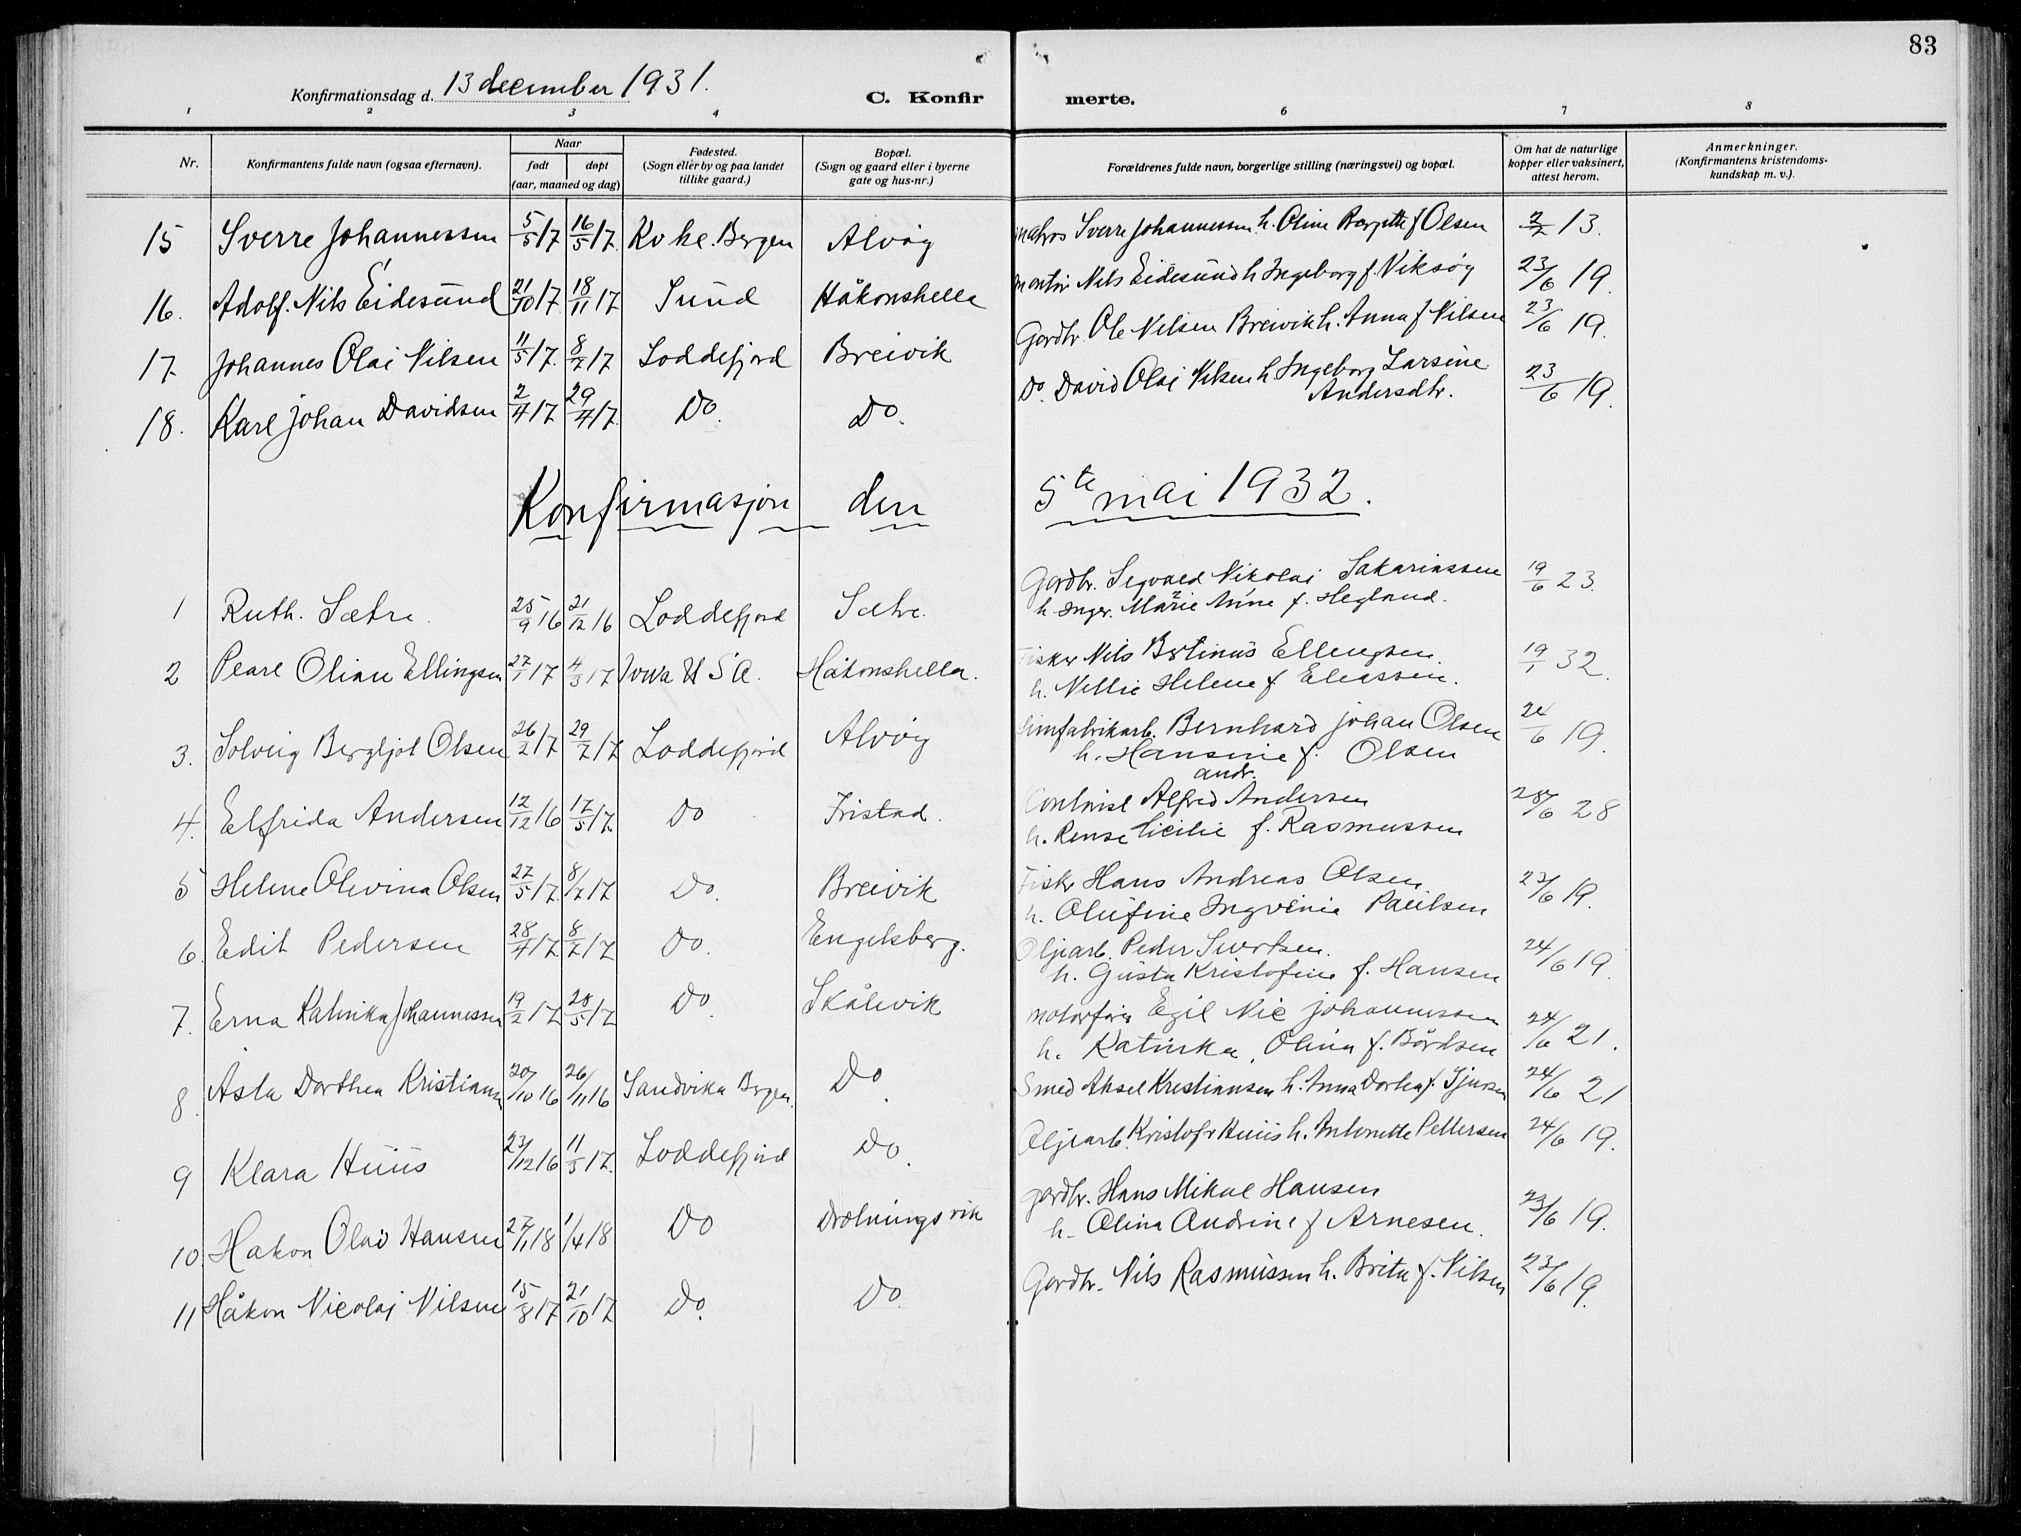 83
Konfirmationsdag d. 13 december 1931. C. Konfirmerte.
1 2 3 4 6 7 8
Nr. Konfirmantens fulde navn (ogsaa efternavn). Naar født døpt (aar, maaned og dag) Fødested. (Sogn eller by og paa landet tillike gaard.) Bopæl. (Sogn og gaard eller i byerne gate og hus-nr.) Forældrenes fulde navn, borgerlige stilling (næringsvei) og bopæl. Om hat de naturlige kopper eller vaksinert, attest herom. Anmerkninger. (Konfirmantens kristendomskundskap m. v.).
15 Sverre Johannessen 5/5 17 16/5 17. Kv kl. Bergen Alvøy matros Sverre Johannessen h. Oline Bergitte f Olsen 2/2 13.
16. Adolf. Nils Eidesund 21/10 17 18/11 17 Sund Håkonshella montør Nils Eidesund h Ingeborg f. Viksøy 23/6 19.
17. Johannes Olai Nilsen 11/5 17. 8/7 17 Loddefjord Breivik Gardbr. Ole Nilsen Breivik h. Anna f Nilsen 23/6 19.
18. Karl Johan Davidsen 2/4 17 29/4 17. Do. Do. Do. David Olai Nilsen h Ingeborg Larsine
Andersdtr. 23/6 19.
Konfirmasjon den 5te mai 1932.
1 Ruth. Sætre. 25/9 16 21/12 16 Loddefjord Sætre. Gardbr. Sigvald Nikolai Sakariassen 19/6 23.
h. Inger. Marie Anne f. Hegland.
2 Pearl Oline Ellingsen 27/1 17 4/3 17 Iowa U S A. Håkonshella. Fisker Nils Bertinus Ellingsen. 19/1 32.
h. Nellie Helene f. Eliassen.
3. Solveig Bergljot Olsen 26/2 17 29/7 17 Loddefjord Alvøy Limfabrikarb. Bernhard Johan Olsen 24/6 19.
h. Hansine f. Olsen
4. Elfrida Andersen 12/12 16 17/5 17. Do Tristad. Alfred Andr. Andersen 28/6 28
h. Cicilie f. Rasmussen
5 Helene Olivina Olsen 27/5 17. 8/7 17 Do. Breivik Fisker Hans Andreas Olsen. 23/6 19.
h. Olufine Ingvine Paulsen
6. Edit Pedersen 28/4 17 8/7 17 Do. Engelsberg. Oljearb. Peder Sivertsen. 24/6 19.
h. Gusta Kristofine f. Hansen
7. Erna Katinka Johannessen 19/2 17 28/5 17 Do. Skålevik motorfører Egil Nic Johannessen 24/6 21.
h. Katinka, Olina f. Bårdsen
8. Asta Dorthea Kristiansen 20/10 16 26/11 16 Sandvika Bergen. Do. Smed Aksel Kristiansen h. Anna Dorthea f. 24/6 21
9 Klara Huus 23/12 16 11/3 17. Loddefjord Do. Oljearb. Kristofer Huus h. Antonette Pettersen 24/6 19.
10. Hakon Olai Hansen 27/1 18 1/4 18 Do Drotningsvik gardbr. Hans Mikal Hansen 23/6 19.
h. Olina Andrine f Arnesen.
11 Håkon Nicolai Nilsen 15/8 17 21/10 17 Do. Do. Gardbr. Nils Rasmussen h. Brita f. Nilsen 23/6 19.